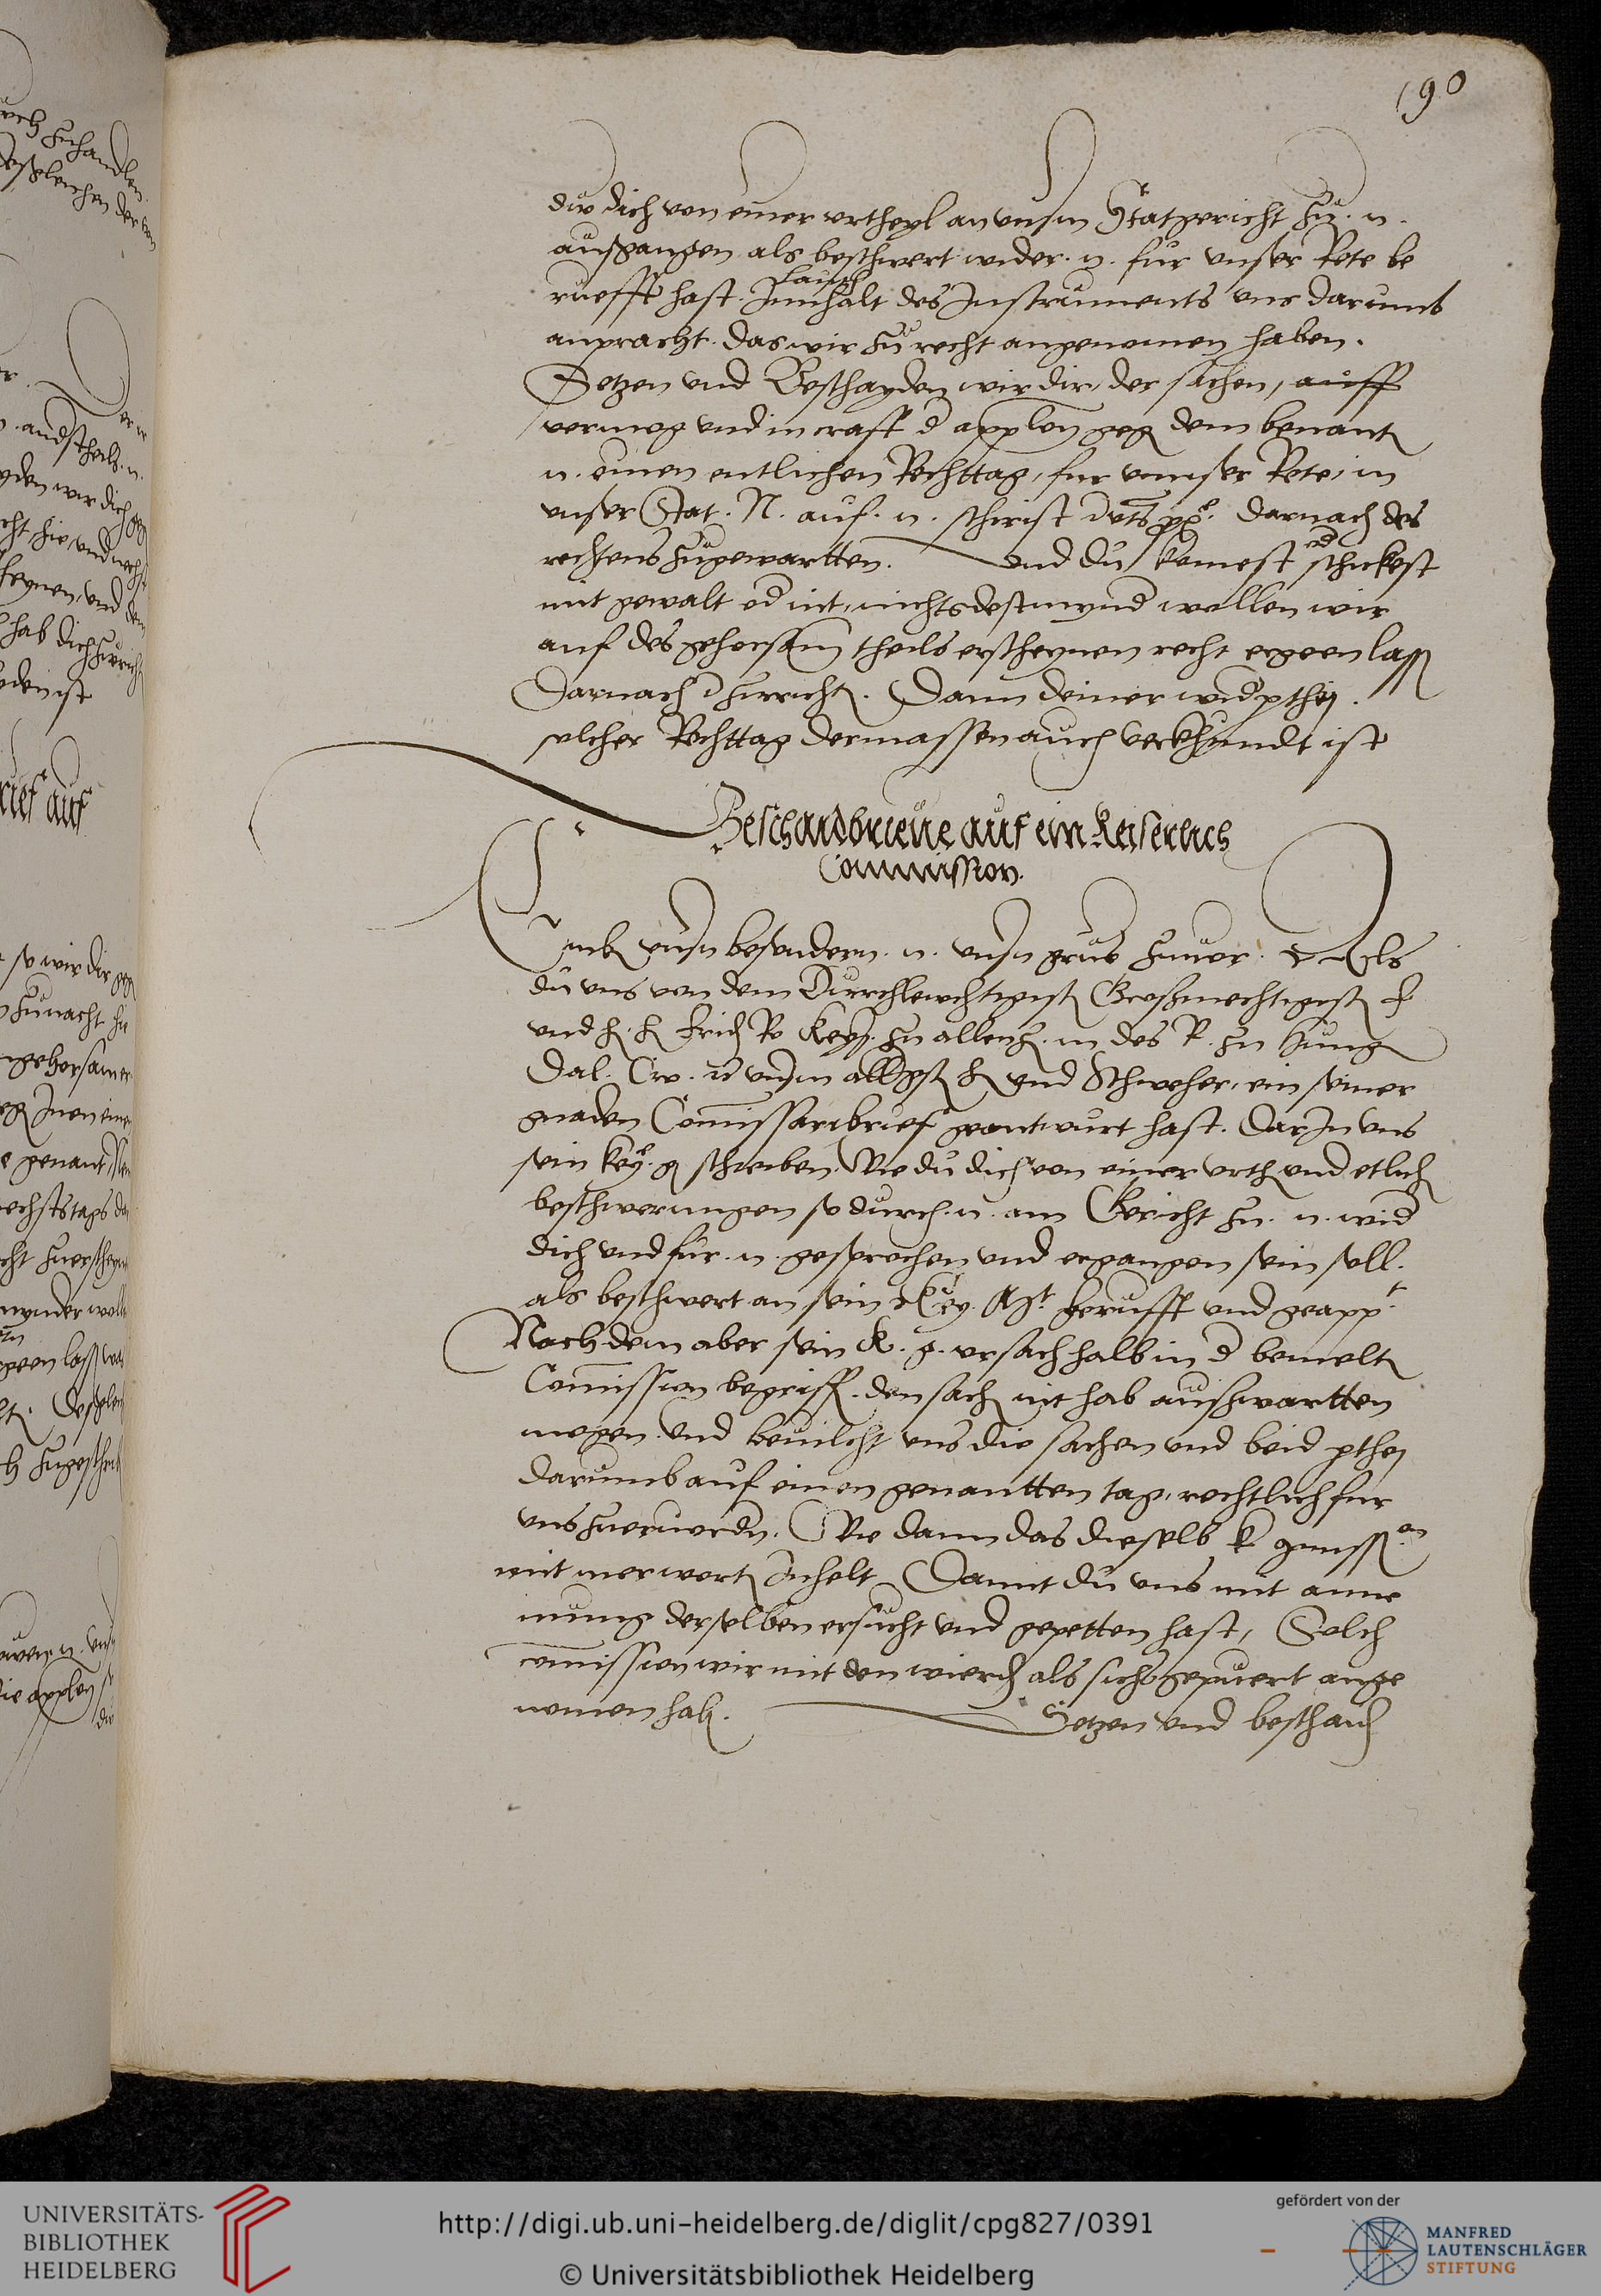 190
du dich von einer vrtheyl an vnsrm Statgericht zu . n .
außgangen als beschwert wider . n . fur vnser Rete be
ruefft hast . Lauth
Innhalt des Instruments vns darumb
anpracht . das wir zu recht angenomen haben .
Setzen vnd Beschayden wir dir , der sachen , auff
vermog vnd in crafft d applon geg dem benant
n . einen entlichen Rechttag , fur vnnser Rete , in
vnser Stat . N . auf . n . schirist darnach des
rechtens zugewartten . vnd du komest od schickest
mit gewalt od nit , nichtsdestmynd wollen wir
auf des gehorsam theils erscheynen recht ergeen lass
Darnach d zurricht . Dann deiner widpthej .
solcher Rechttag dermassen auch verkhundt ist
Beschaidbrieue auf ein Keiserlich
Commission .
vnsn besondern . n . vnsn grus zuuor . Als
du vns von dem Durchlewchtigist Großmechtigist f
vnd h . h frid Ro Keys . zu allenz . m des R . zu Hung
Dal . Cro . vnsrm allgst h vnd Schweher , ein seiner
gnaden Comissaribrief geantwurt hast . Dar Jn vns
sein key . g schreiben . Wie du dich von einer vrth vnd etlich
beschwerungen so durch . n . am Gericht zu . n . wid
dich vnd fur . n . gesprochen vnd ergangen sein soll .
als beschwert an sein Key . Mt . berufft vnd geapp t
Nachdem aber sein K . g . vrsach halb in d bemelt
Comission begriff . den sach nit hab außwartten
mogen . vnd beuilcht vns die sachen vnd beid pthej
darumb auf einen genantten tag , rechtlich fur
vns zueruordn . Wie dann das dieselb k
mit mer wort Inhelt Damit du vns mit anne
mung derselben ersucht vnd gepetten hast , Solch
comission wir mit den wierd als sichs gepuert ange
nomen hab . Setzen vnd beschaid
UNIVERSITÄTS-
BIBLIOTHEK
HEIDELBERG
http://digi.ub.uni-heidelberg.de/diglit/cpg827/0391
© Universitätsbibliothek Heidelberg
gefördert von der
MANFRED
LAUTENSCHLÄGER
STIFTUNG